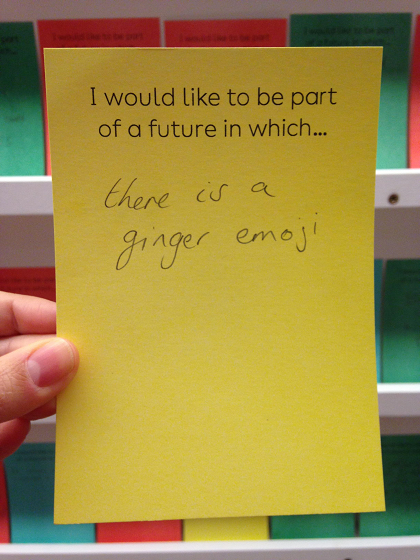 I would like to be part
of a future in which...
there is a
ginger emoji